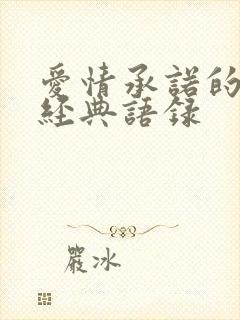 愛情承諾的
經典語錄
嚴冰